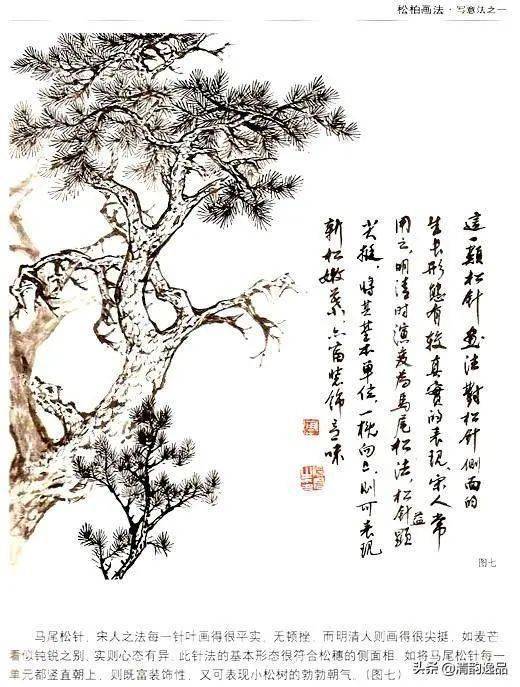 松柏画法·写意法之一
這一類松針画法對松針側面的
生长形態有較真實的表現宋人常
用之,明清时演变為馬尾松法,松針益顯
尖挺,将其基本單位,一概向上,則可表現
新松嫩葉,亦富装飾意味
图七
马尾松针，宋人之法每一针叶画得很平实，无顿挫，而明清人则画得很尖挺，如麦芒
看似钝锐之别，实则心态有异。此针法的基本形态很符合松穗的侧面相。如将马尾松针每一
单元都竖直朝上，则既富装饰性，又可表现小松树的勃勃朝气。（图七）
头条 @清韵逸品